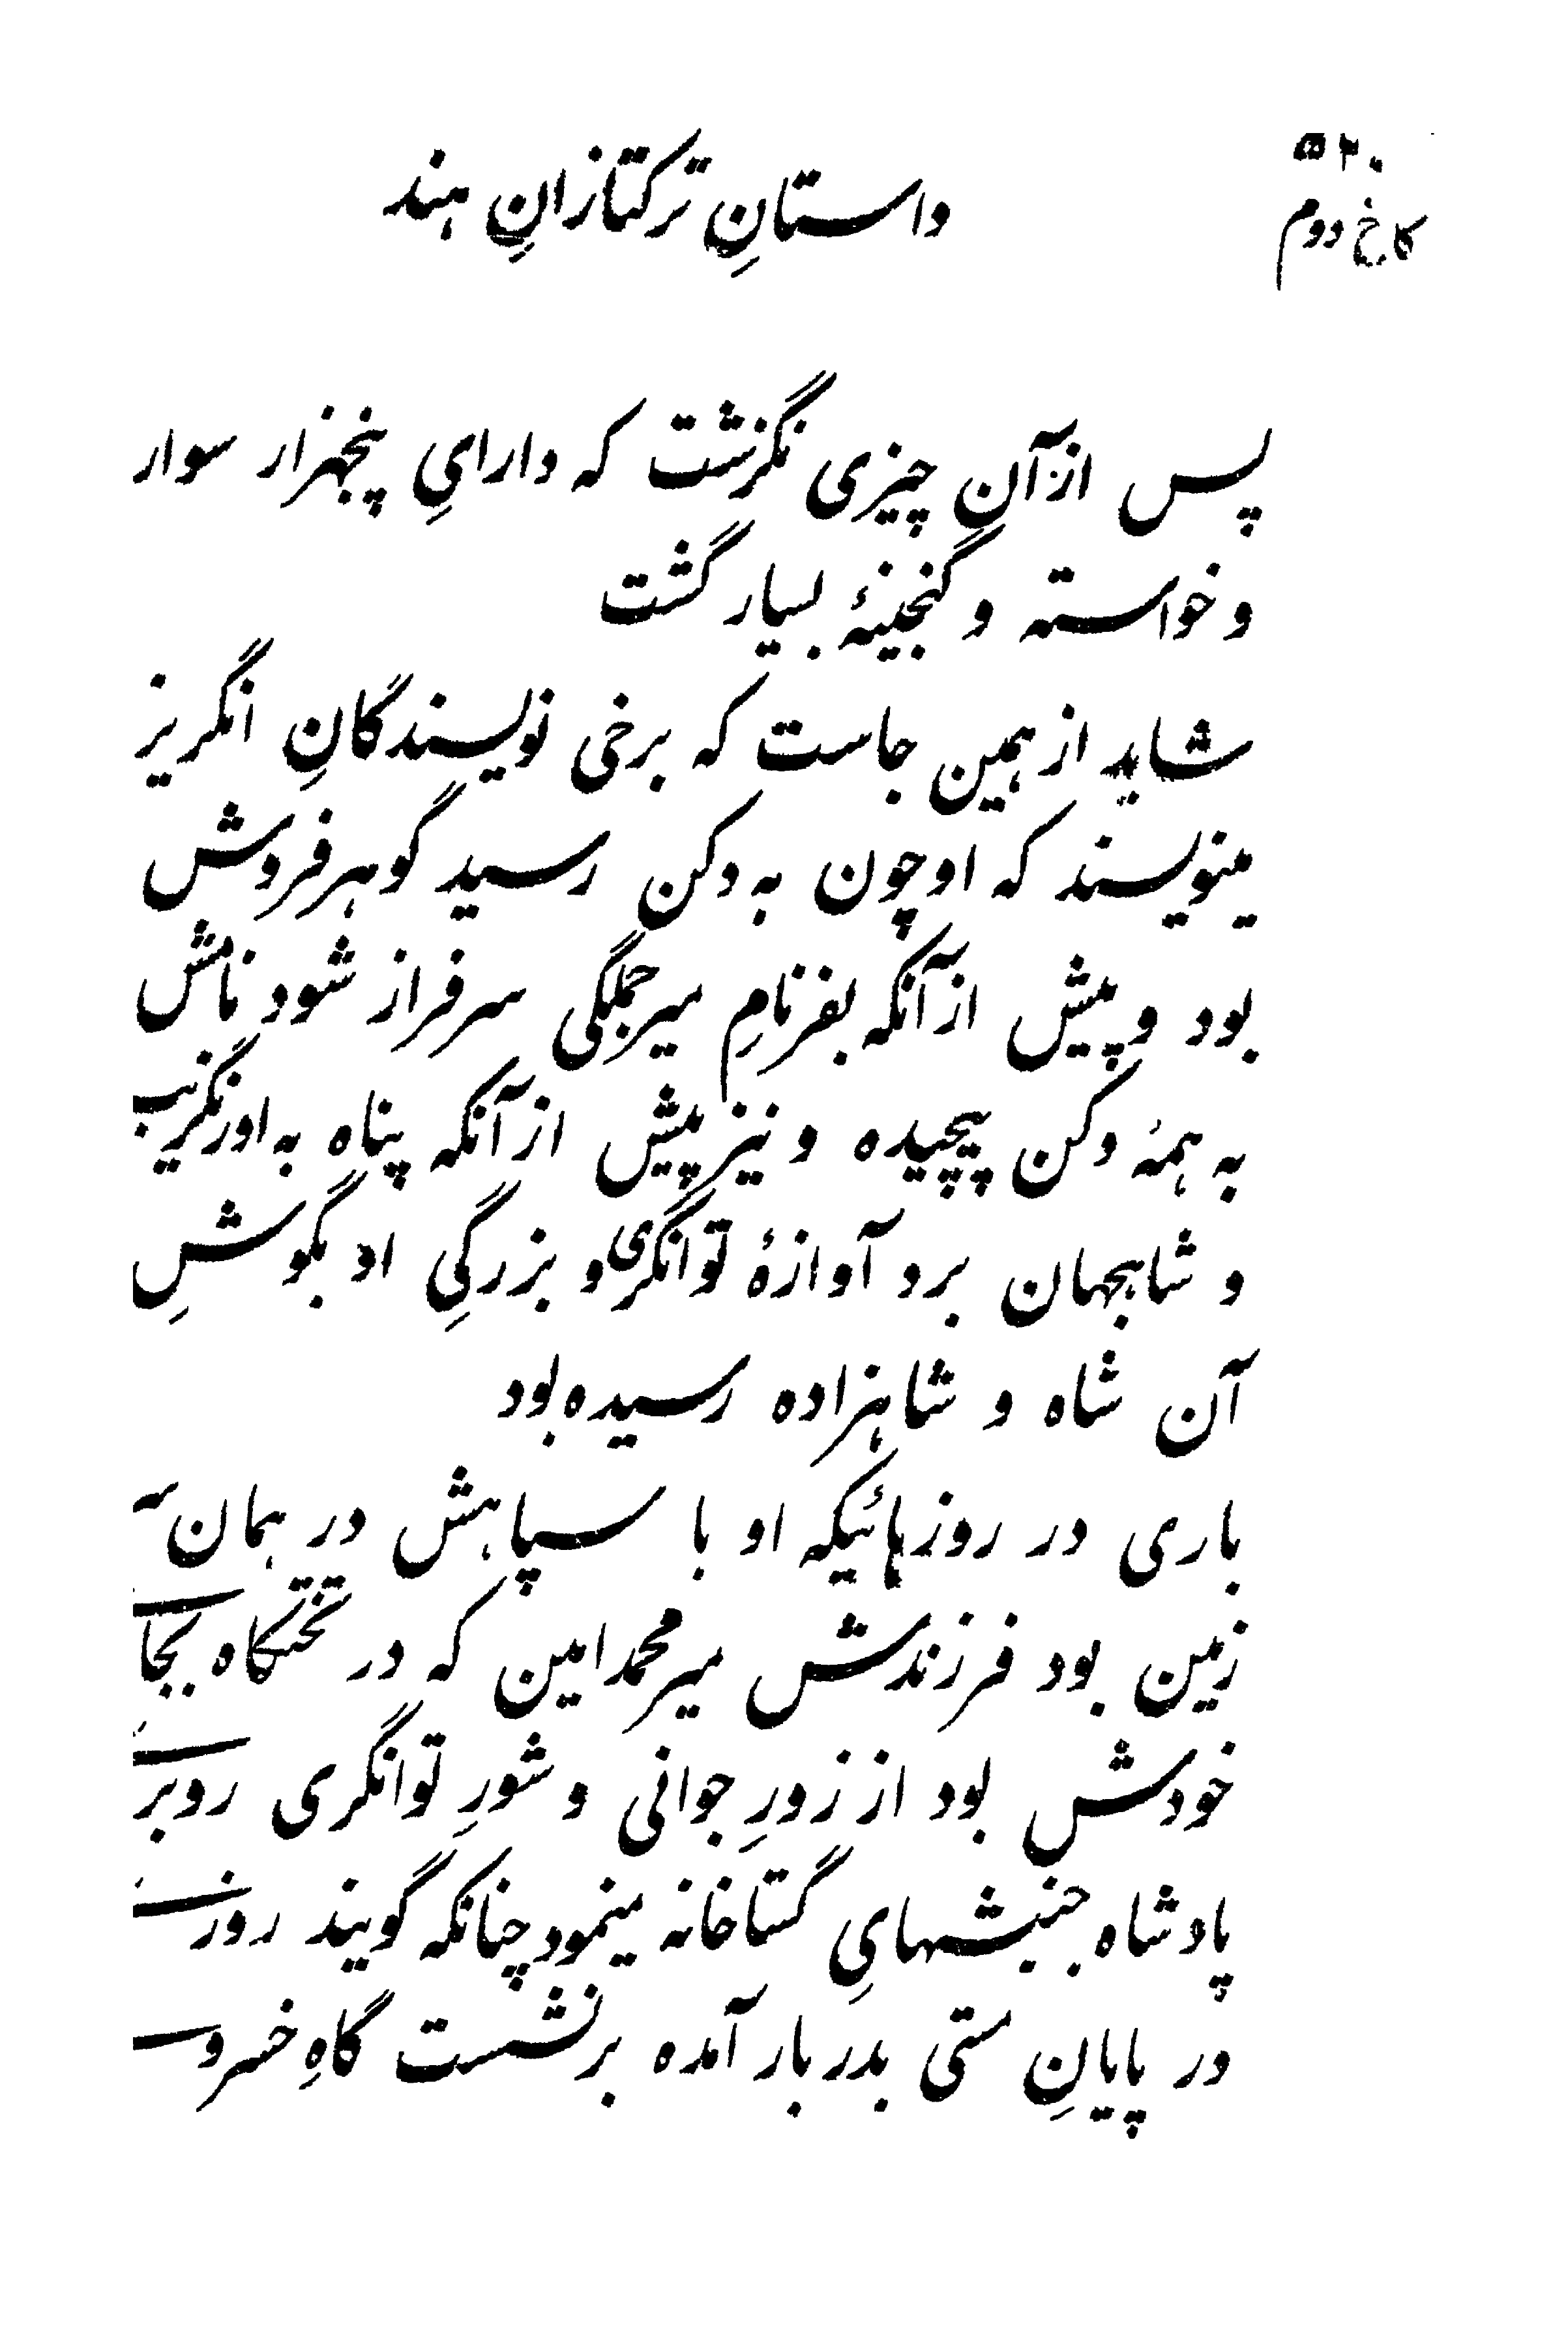 ۵۲۰
کاخ دوم
داستانِ ترکتازانِ هند
پس ازآن چیزی نگزشت که دارایِ پنجهزار سوار
و خواسته و گنجینهٔ بسیار گشت
شاید از همین جاست که برخی نویسندگانِ انگریز
مینویسند که او چون به دکن رسید گوهرفروش
بود و پیش ازآنکه بفرنامِ میرجملگی سرفراز شود نامش
به همهٔ دکن پیچیده و نیز پیش ازآنکه پناه به اورنگزیب
و شاهجهان برد آوازهٔ توانگری و بزرگیِ او بگوشِ
آن شاه و شاهزاده رسیده بود
باری در روزهائیکه او با سپاهش در همان
زمین بود فرزندش میرمحمدامین که در تختگاه بجا
خودش بود از زورِ جوانی و شورِ توانگری روبر
پادشاه جنبشهایِ گستاخانه مینمود چنانکه گویند روز
در پایانِ مستی بدربار آمده برنشست گاهِ خسرو